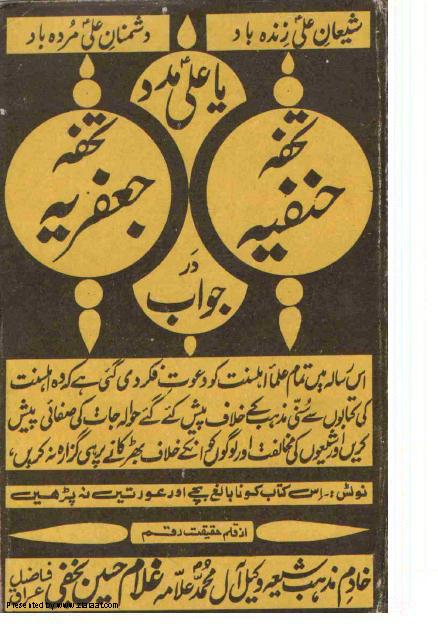 شیعانِ علیؑ زندہ باد
دشمنانِ علیؑ مُردہ باد
یا علیؑ مدد
تحفہ حنفیہ
در جواب
تحفہ جعفریہ
اس رسالہ میں تمام علماءِ اہلسنت کو دعوتِ فکر دی گئی ہے کہ وہ اہلسنت
کی کتابوں سے سُنّی مذہب کے خلاف پیش کئے گئے حوالہ جات کی صفائی پیش
کریں اور شیعوں کی مخالفت اور لوگوں کو انکے خلاف بھڑکانے پر ہی گزارہ نہ کریں،
نوٹ:۔ اس کتاب کو نابالغ بچے اور عورتیں نہ پڑھیں
از قلم حقیقت رقم
خادم مذہب شیعہ وکیل آلِ محمدؐ علامہ غلام حسین نجفی فاضلِ عراق
Presented by www.ziaraat.com